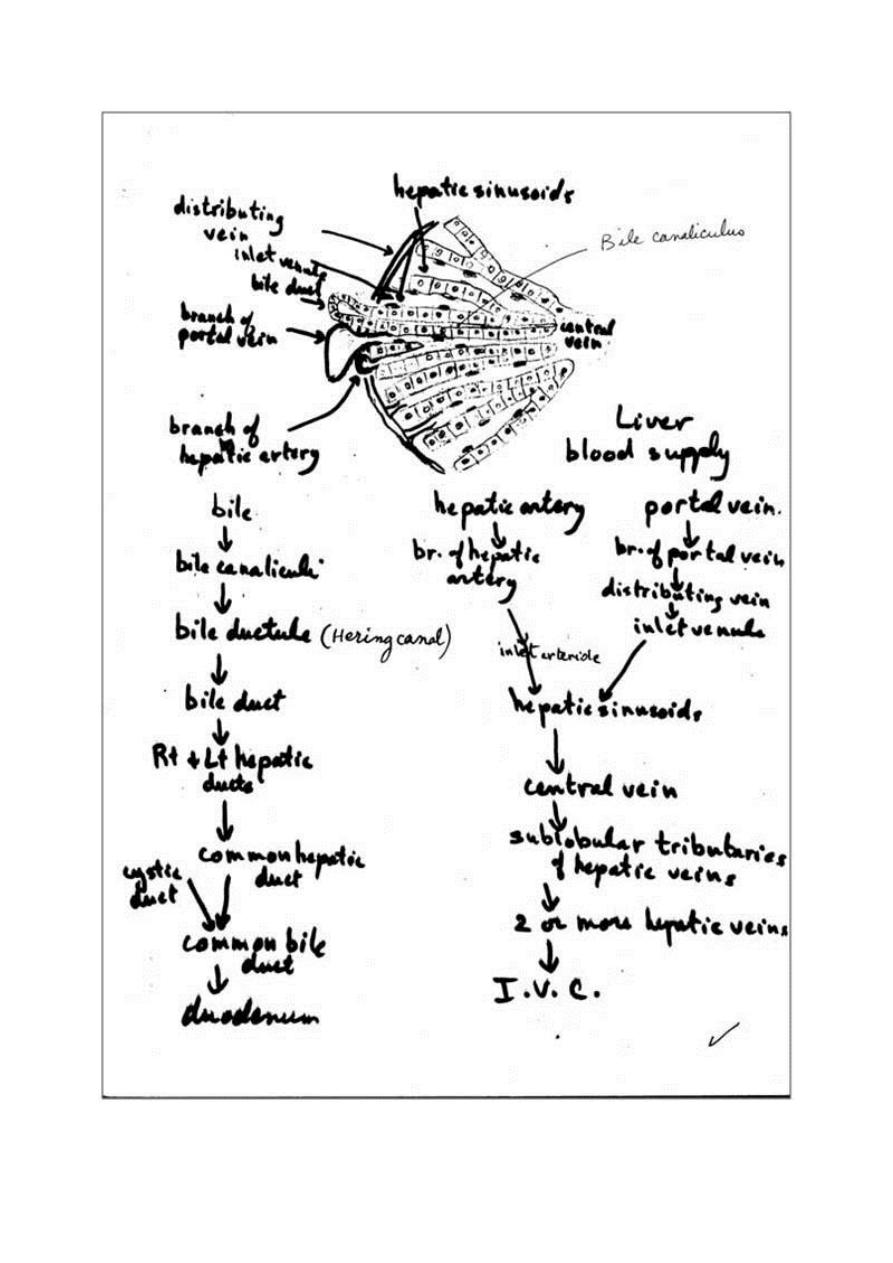 hepatic sinusoids
distributing
vein
inlet venule
bile duct
branch of
portal vein
branch of
hepatic artery
Bile canaliculus
central
vein
Liver
blood supply
bile
bile canaliculi
bile ductule (Hering canal)
bile duct
Rt + Lt hepatic
ducts
common hepatic
duct
cystic
duct
common bile
duct
duodenum
hepatic artery
br. of hepatic
artery
inlet arteriole
portal vein.
br. of portal vein
distributing vein
inlet venule
hepatic sinusoids
central vein
sublobular tributaries
of hepatic veins
2 or more hepatic veins
I.V.C.